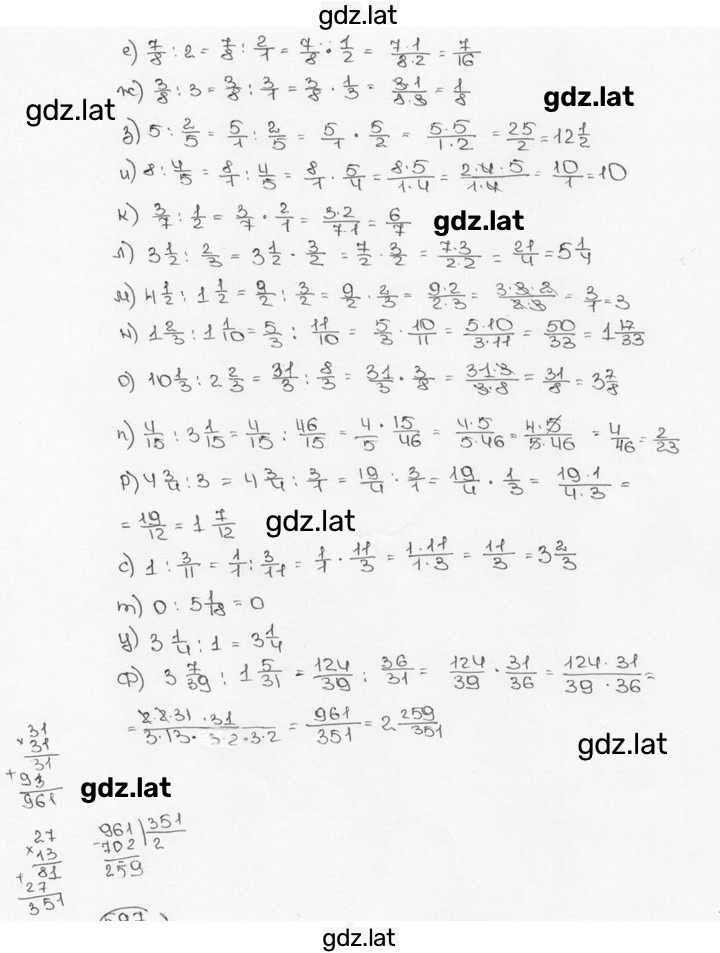 gdz.lat
е) 7/8 : 2 = 7/8 : 2/1 = 7/8 · 1/2 = 7·1/8·2 = 7/16
ж) 3/8 : 3 = 3/8 : 3/1 = 3/8 · 1/3 = 3·1/8·3 = 1/8
gdz.lat gdz.lat
з) 5 : 2/5 = 5/1 : 2/5 = 5/1 · 5/2 = 5·5/1·2 = 25/2 = 12 1/2
и) 8 : 4/5 = 8/1 : 4/5 = 8/1 · 5/4 = 8·5/1·4 = 2·4·5/1·4 = 10/1 = 10
к) 3/7 : 1/2 = 3/7 · 2/1 = 3·2/7·1 = 6/7
gdz.lat
л) 3 1/2 : 2/3 = 3 1/2 · 3/2 = 7/2 · 3/2 = 7·3/2·2 = 21/4 = 5 1/4
м) 4 1/2 : 1 1/2 = 9/2 : 3/2 = 9/2 · 2/3 = 9·2/2·3 = 3·3·2/2·3 = 3/1 = 3
н) 1 2/3 : 1 1/10 = 5/3 : 11/10 = 5/3 · 10/11 = 5·10/3·11 = 50/33 = 1 17/33
о) 10 1/3 : 2 2/3 = 31/3 : 8/3 = 31/3 · 3/8 = 31·3/3·8 = 31/8 = 3 7/8
п) 4/15 : 3 1/15 = 4/15 : 46/15 = 4/5 · 15/46 = 4·5/5·46 = 4·5/5·46 = 4/46 = 2/23
р) 4 3/4 : 3 = 4 3/4 : 3/1 = 19/4 : 3/1 = 19/4 · 1/3 = 19·1/4·3 =
= 19/12 = 1 7/12
gdz.lat
с) 1 : 3/11 = 1/1 : 3/11 = 1/1 · 11/3 = 1·11/1·3 = 11/3 = 3 2/3
т) 0 : 5 1/18 = 0
у) 3 1/4 : 1 = 3 1/4
ф) 3 7/39 : 1 5/31 = 124/39 : 36/31 = 124/39 · 31/36 = 124·31/39·36 =
= 2·2·31·31/3·13·3·2·3·2 = 961/351 = 2 259/351
gdz.lat
31
× 31
31
+ 93
961
gdz.lat
27
× 13
81
+ 27
351
961 | 351
- 702 | 2
259
gdz.lat